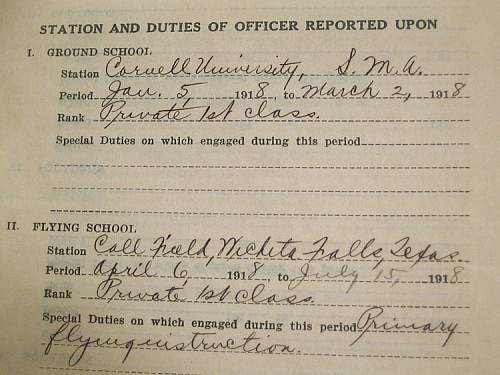 STATION AND DUTIES OF OFFICER REPORTED UPON
I. GROUND SCHOOL
Station Cornell University, S. M. A.
Period Jan. 5, 1918, to March 2, 1918
Rank Private 1st class.
Special Duties on which engaged during this period
II. FLYING SCHOOL
Station Call Field, Wichita Falls, Texas
Period April 6, 1918, to July 15, 1918
Rank Private 1st class.
Special Duties on which engaged during this period Primary
flying instruction.